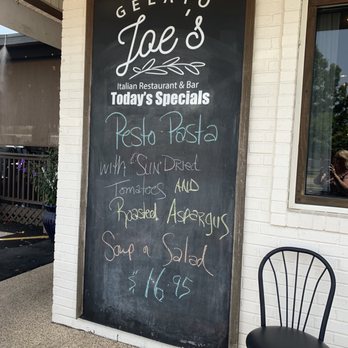 GELATO
Joe's
Italian Restaurant & Bar
Today's Specials
Pesto Pasta
with "Sun" Dried
Tomatoes AND
Roasted Aspargus
Soup or Salad
$16.95